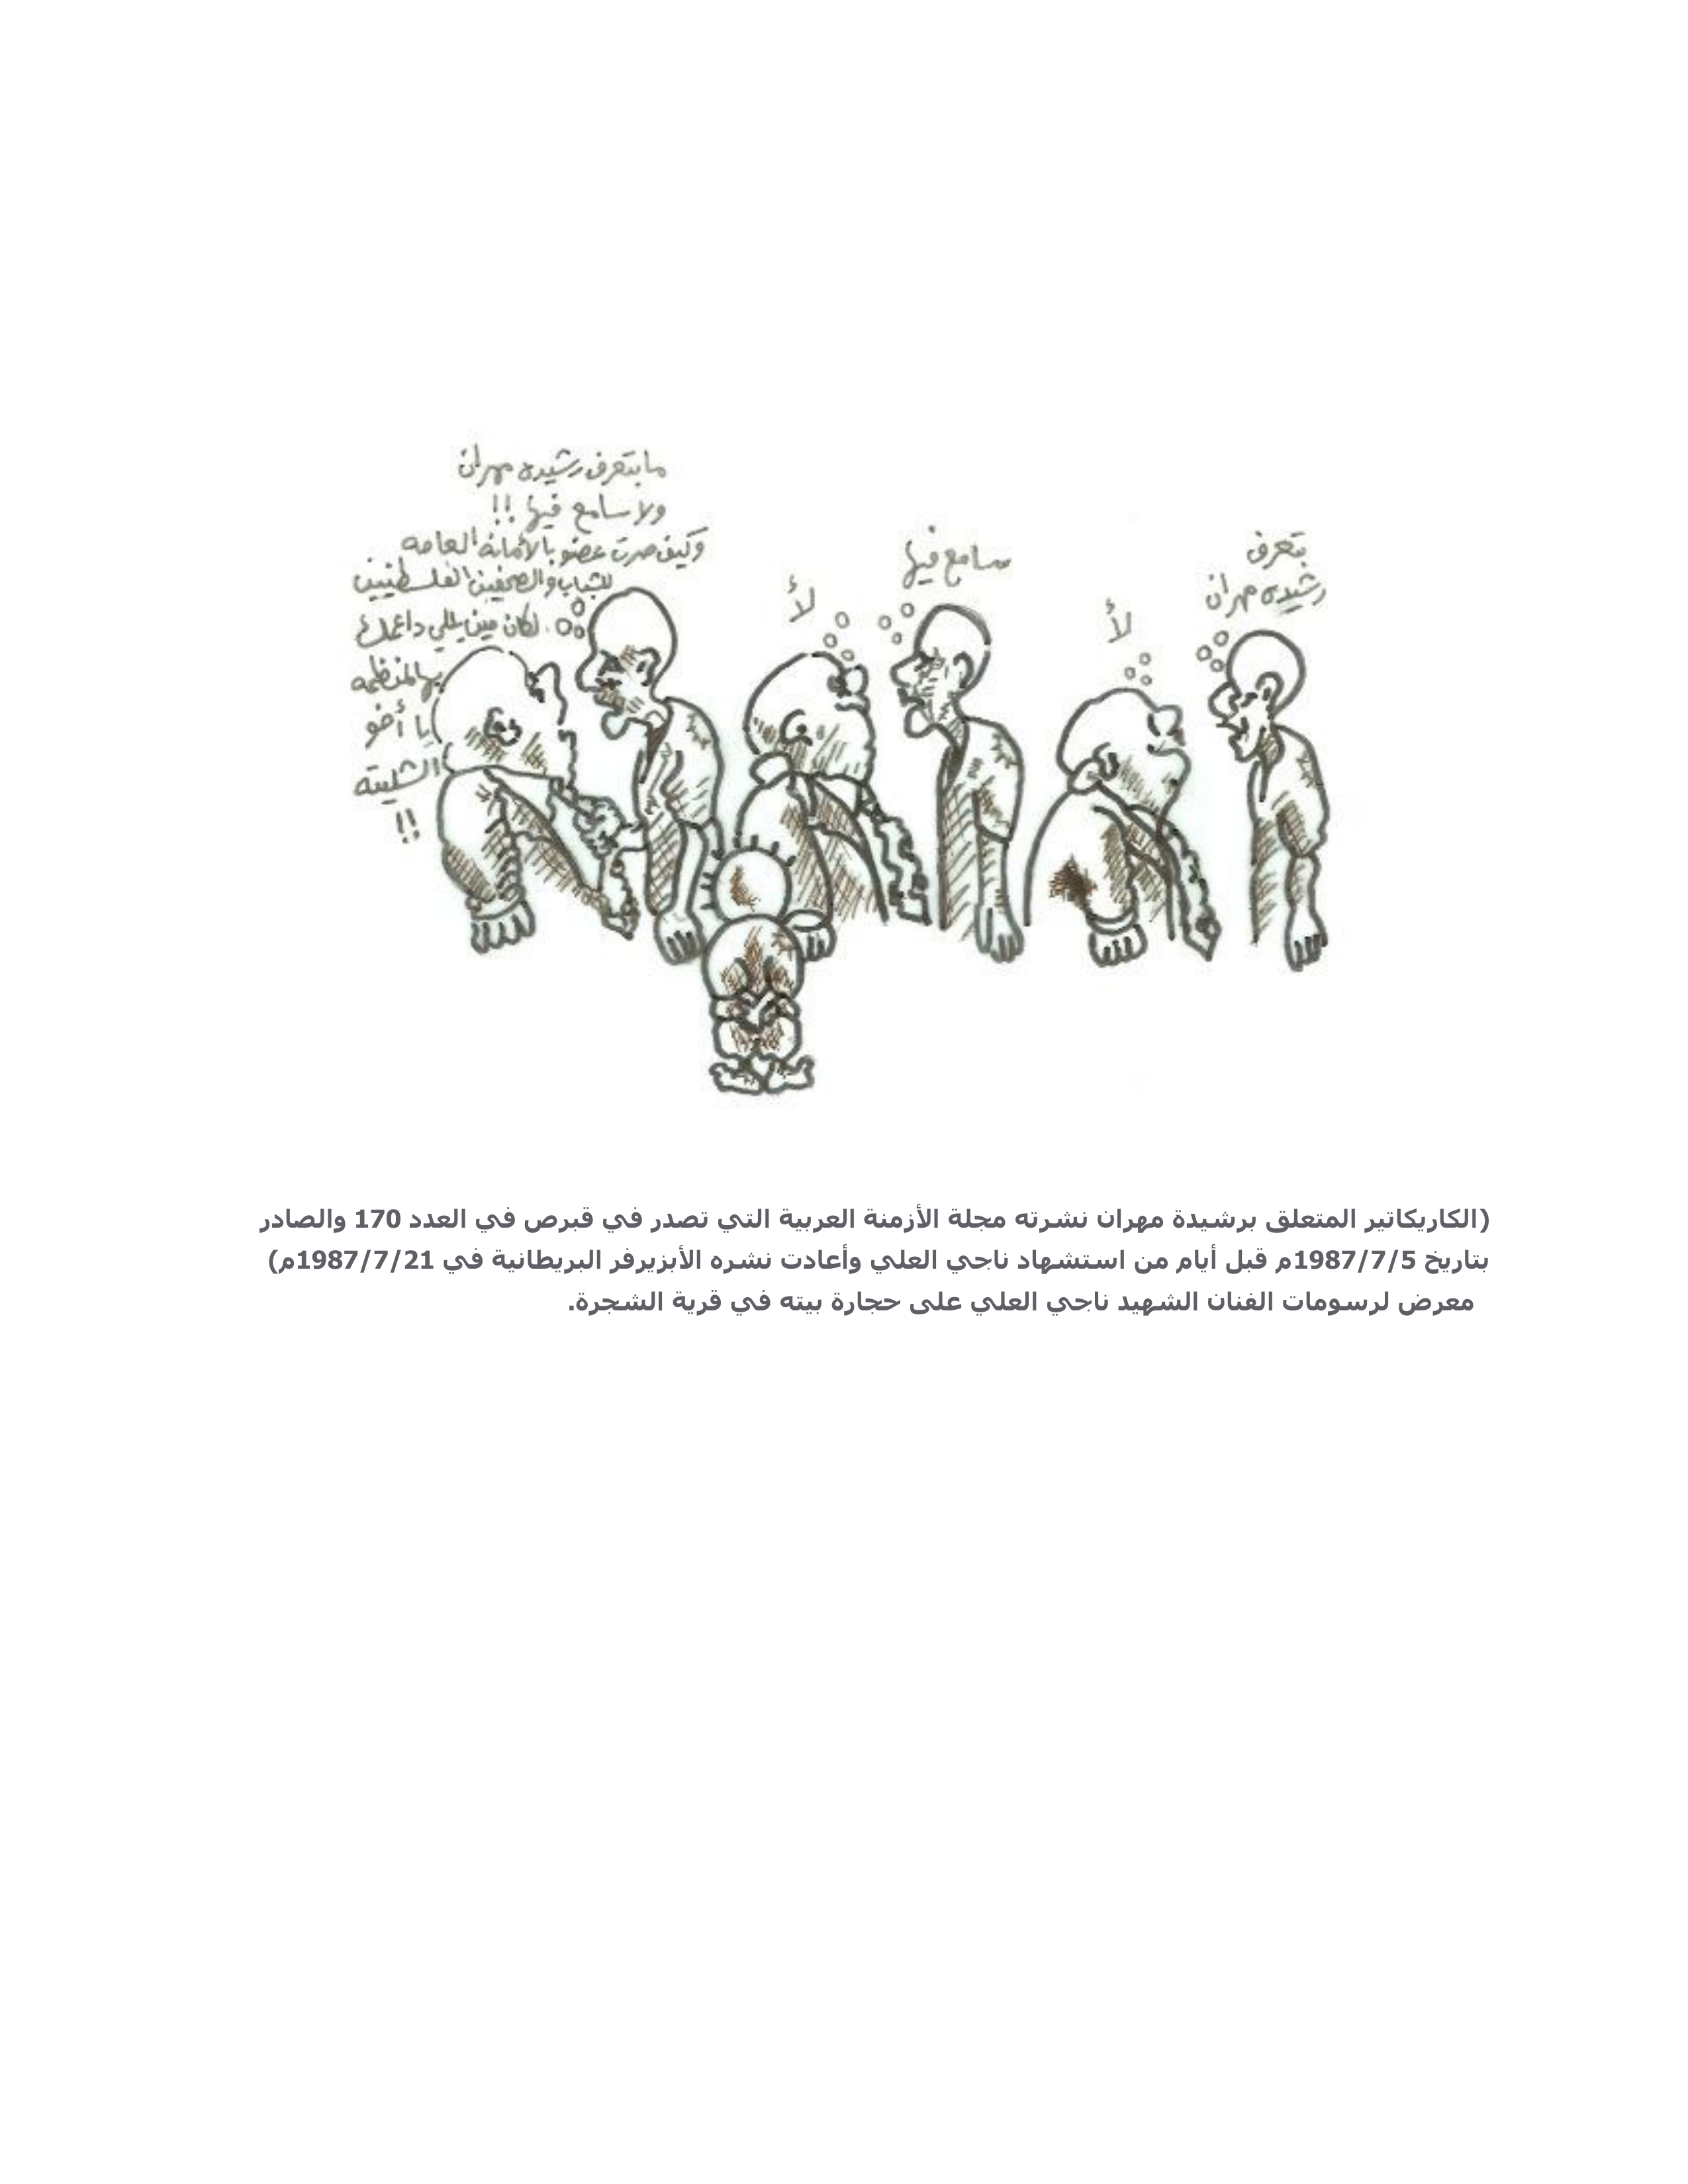 بتعرف
رشيده مهران
لأ
سامع فيها
لأ
ما بتعرف رشيده مهران
ولا سامع فيها !!
وكيف صرت عضو بالأمانه العامه
للكتاب والصحفيين الفلسطينيين
لكان مين يللي داعمك
بهالمنظمه
يا أخو
الشليته
!!
(الكاريكاتير المتعلق برشيدة مهران نشرته مجلة الأزمنة العربية التي تصدر في قبرص في العدد 170 والصادر
بتاريخ 1987/7/5م قبل أيام من استشهاد ناجي العلي وأعادت نشره الأبزيرفر البريطانية في 1987/7/21م)
معرض لرسومات الفنان الشهيد ناجي العلي على حجارة بيته في قرية الشجرة.